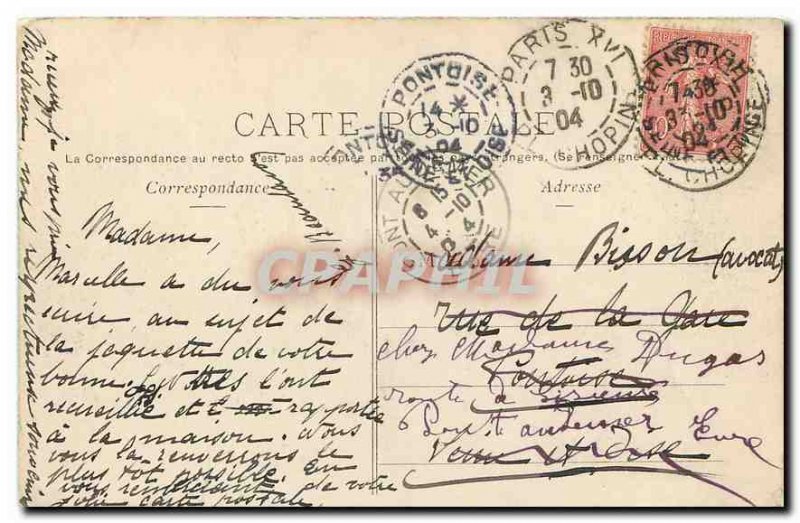 CARTE POSTALE
La Correspondance au recto n'est pas acceptée par tous les pays étrangers. (Se renseigner
Correspondance
Adresse
PARIS XVI
7 30
3 -10
04
R. CHOPIN
PONTOISE
14 *
3 -10
04
SEINE-ET-OISE
PONT AUDEMER
8 15
4 -10
04
EURE
CPAPHIL
Madame,
Marcelle a du vous
écrire au sujet de
la jaquette de votre
bonne. Lottres l'ont
recueillie et rapportée
à la maison. Nous
vous la renverrons le
plus tôt possible. En
vous remerciant de votre
jolie carte postale,
Madame, mes respectueux
Madame Bisson (avocat)
rue de la Gare
Pontoise
Seine et Oise
chez Madame Dugas
route de
Pont-Audemer Eure